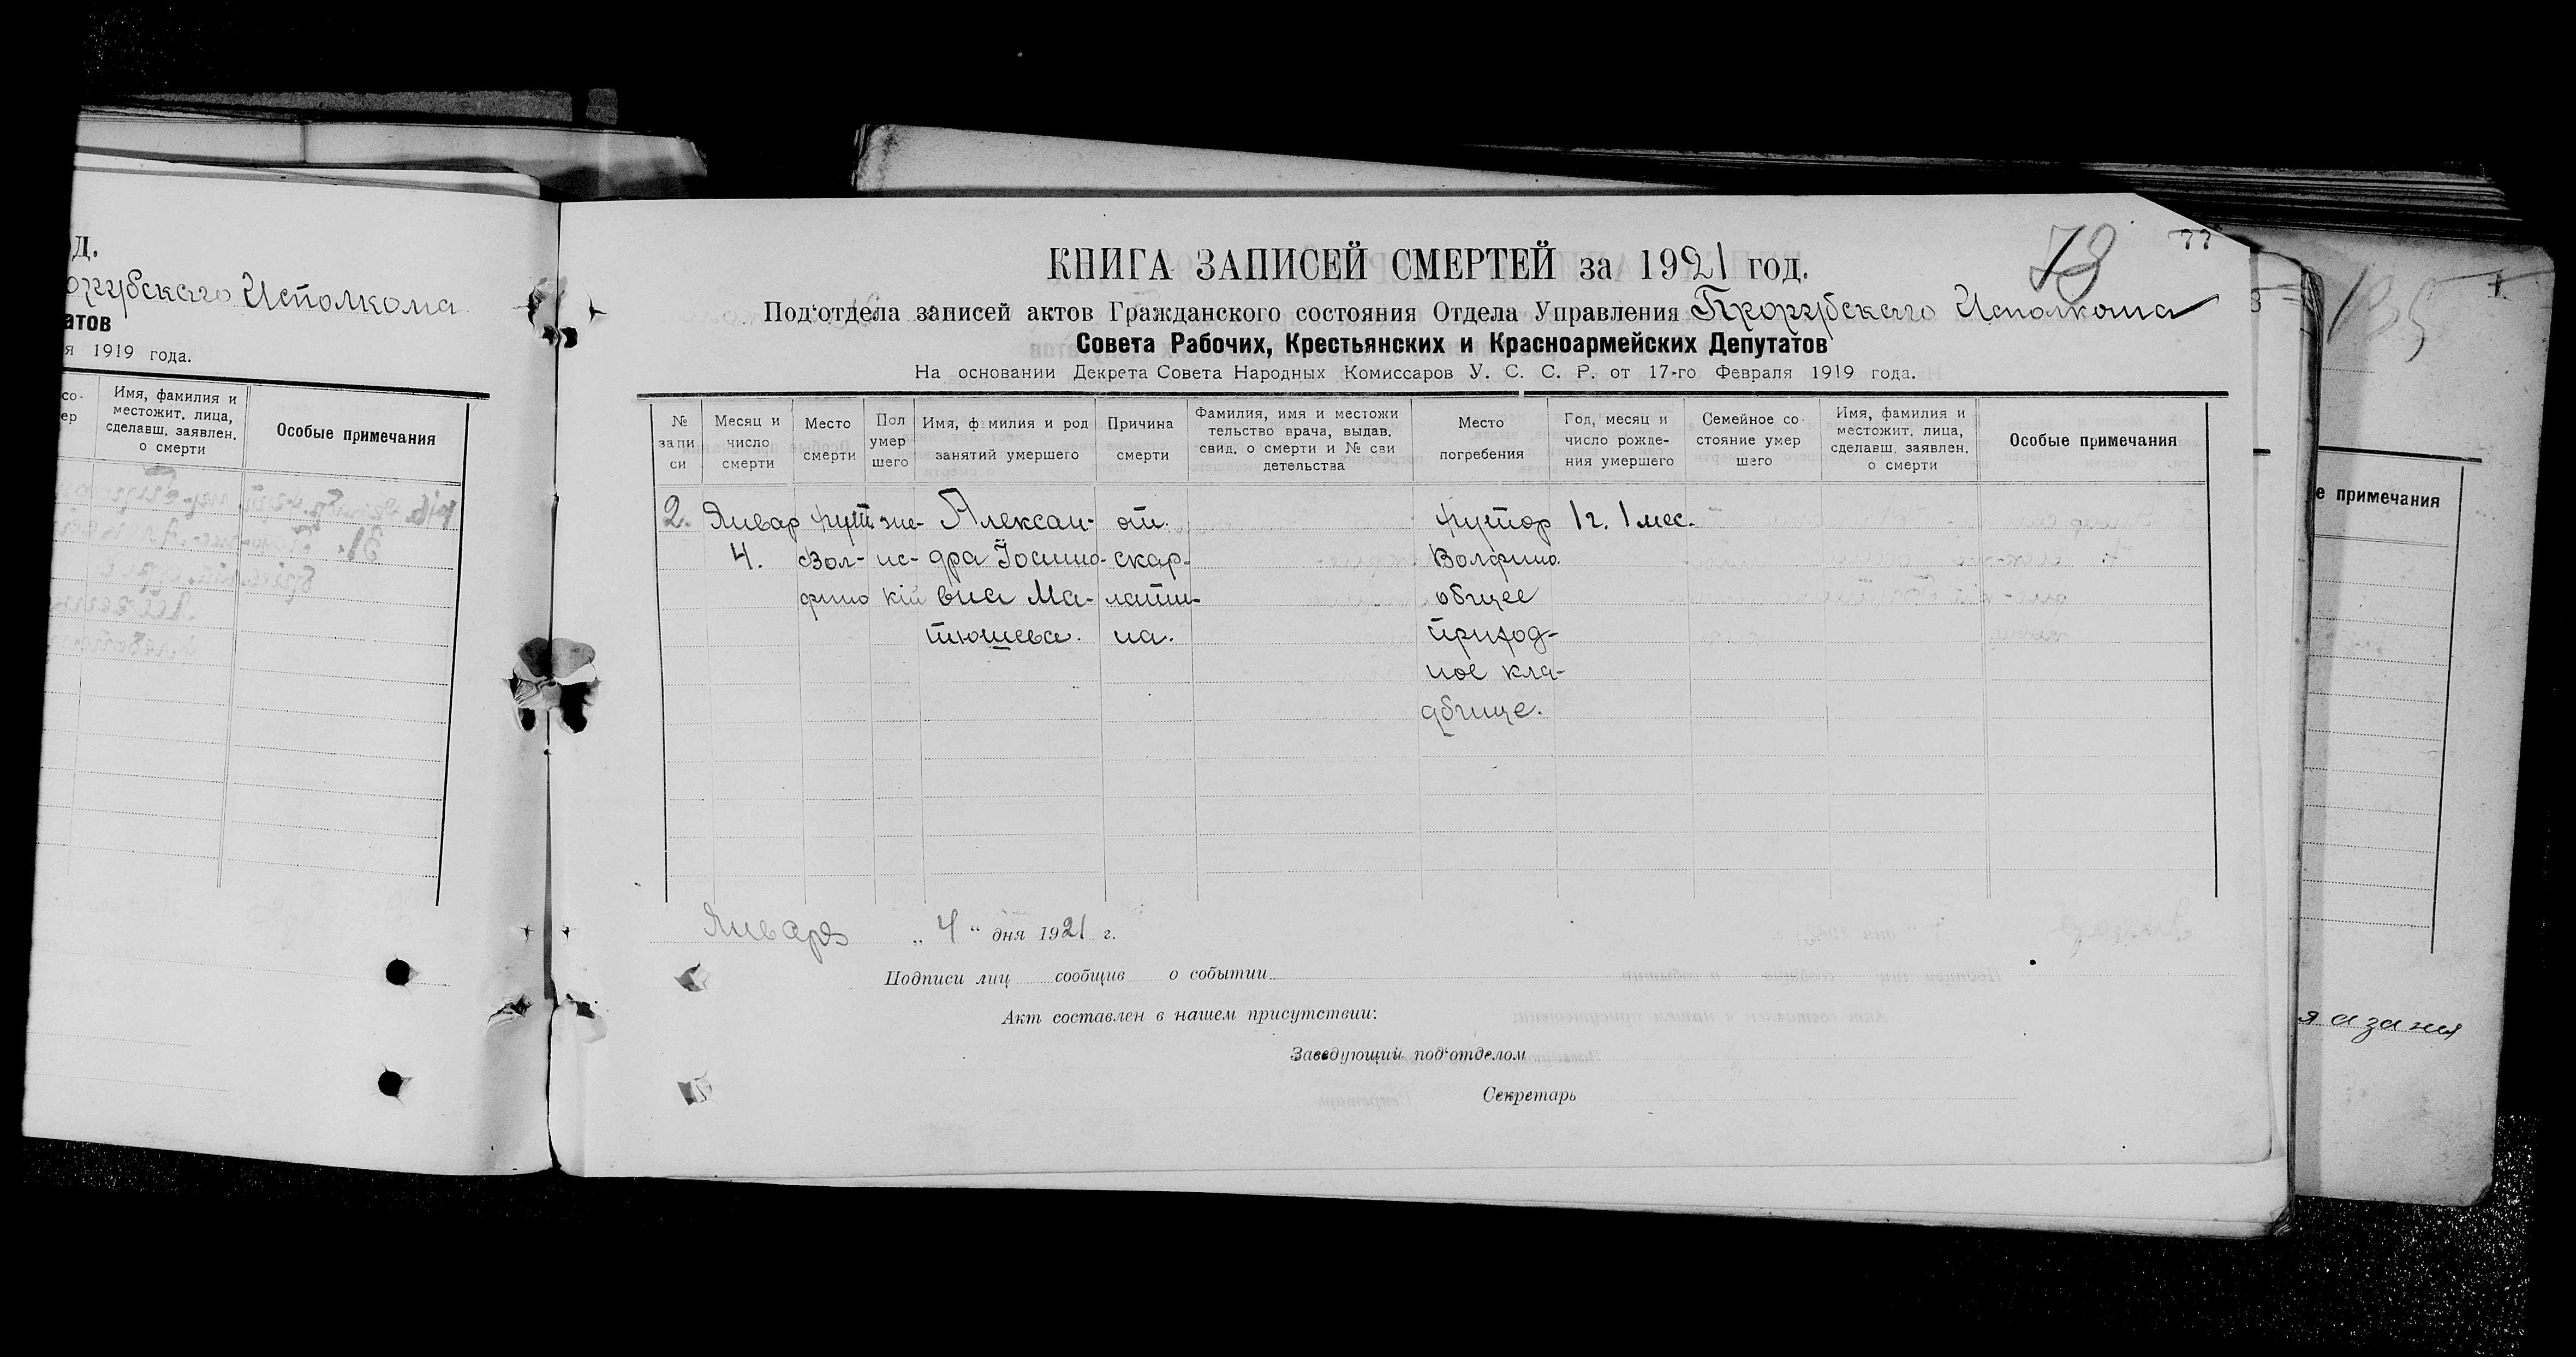 д.
Исполкома
атов
я 1919 года.
со-
ер
Имя, фамилия и
местожит. лица,
сделавш. заявлен.
о смерти
Особые примечания
КНИГА ЗАПИСЕЙ СМЕРТЕЙ за 1921 год.
73
77
Под'отдела записей актов Гражданского состояния Отдела Управления Прорубского Исполкома
Совета Рабочих, Крестьянских и Красноармейских Депутатов
На основании Декрета Совета Народных Комиссаров У. С. С. Р. от 17-го Февраля 1919 года.
№
запи
си
Месяц и
число
смерти
Место
смерти
Пол
умер
шего
Имя, фамилия и род
занятий умершего
Причина
смерти
Фамилия, имя и местожи
тельство врача, выдав.
свид. о смерти и № сви
детельства
Место
погребения
Год, месяц и
число рожде-
ния умершего
Семейное со
стояние умер
шего
Имя, фамилия и
местожит. лица,
сделавш. заявлен.
о смерти
Особые примечания
2.
Январ
4.
хут.
Вол-
фино
жен-
ис-
кій
Алексан-
дра Іосифо-
вна Ма-
тюшева.
от
скар-
лати-
на.
хутор
Волфино
общее
приход-
ное кла-
дбище.
1 г. 1 мес.
Января „ 4 “ дня 1921 г.
Подписи лиц сообщив о событии
Акт составлен в нашем присутствии:
Заведующий под'отделом
Секретарь
135
е примечания